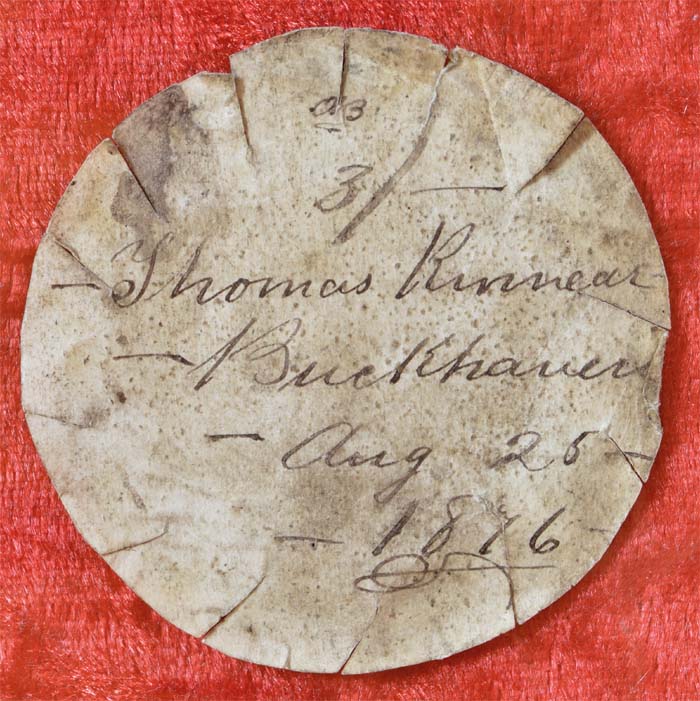 3/—
— Thomas Kinnear
— Buckhaven
— Aug 25 —
— 1876 —